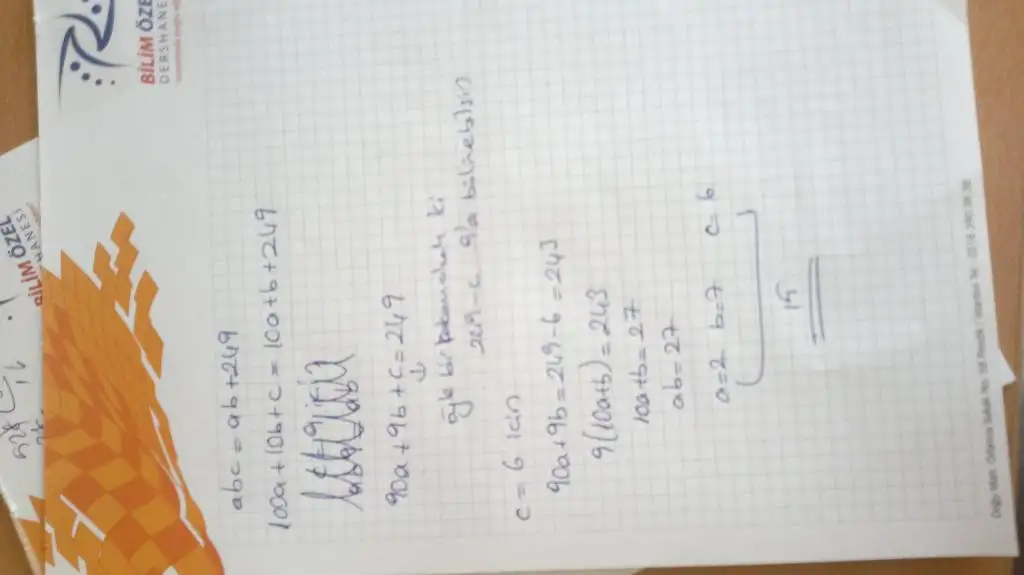 BİLİM ÖZEL
DERSHANE
BİLİM ÖZEL
HANESİ
abc = ab + 249
100a + 10b + c = 10a + b + 249
90a + 9b + c = 249
öyle bir bulunacak ki
249 - c 9'a bölünebilsin
c = 6 için
90a + 9b = 249 - 6 = 243
9(10a + b) = 243
10a + b = 27
ab = 27
a = 2 b = 7 c = 6
15